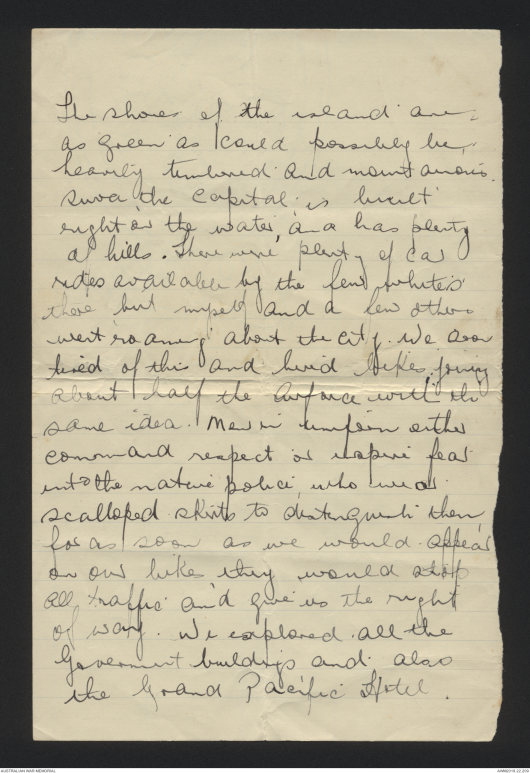 The shores of the island are
as green as could possibly be,
heavily timbered and mountainous.
Suva the Capital is built
right on the water, and has plenty
of hills. There were plenty of car
rides available by the few whites
there but myself and a few others
went roaming about the city. We soon
tired of this and hired bikes joining
about half the Airforce with the
same idea. Men in uniform either
command respect or inspire fear
into the native police, who wear
scalloped skirts to distinguish them
for as soon as we would appear
on our bikes they would stop
all traffic and give us the right
of way. We explored all the
Government buildings and also
the Grand Pacific Hotel.
AUSTRALIAN WAR MEMORIAL